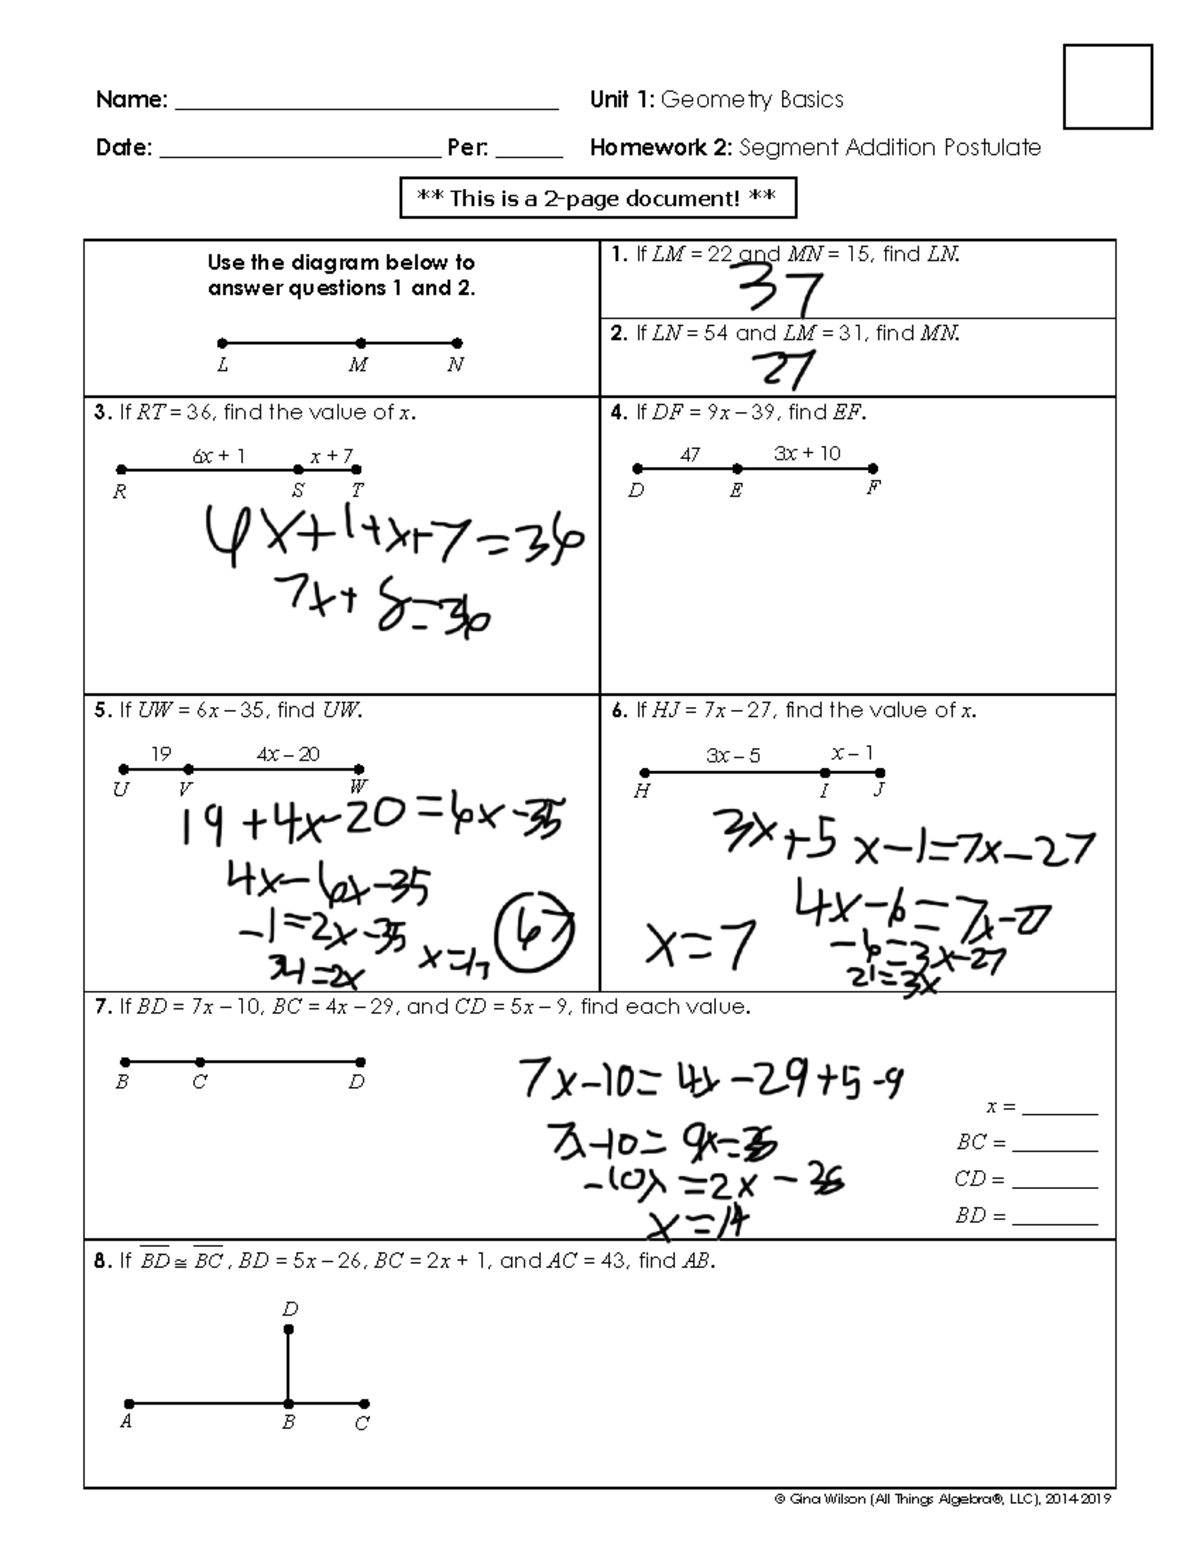 Name: ______ Unit 1: Geometry Basics
Date: ______ Per: ______ Homework 2: Segment Addition Postulate
** This is a 2-page document! **
Use the diagram below to
answer questions 1 and 2.
L M N
1. If LM = 22 and MN = 15, find LN.
37
2. If LN = 54 and LM = 31, find MN.
27
3. If RT = 36, find the value of x.
6x + 1 x + 7
R S T
6x+1+x+7=36
7x+8=36
4. If DF = 9x – 39, find EF.
47 3x + 10
D E F
5. If UW = 6x – 35, find UW.
19 4x – 20
U V W
19+4x-20=6x-35
4x-6x-35
-1=2x-35
34=2x x=17 67
6. If HJ = 7x – 27, find the value of x.
3x – 5 x – 1
H I J
3x+5 x-1=7x-27
4x-6=7x-27
-6=3x-27
21=3x
x=7
7. If BD = 7x – 10, BC = 4x – 29, and CD = 5x – 9, find each value.
B C D
7x-10=4x-29+5-9
7x-10=9x-38
=2x-38
x=14
x = ______
BC = ______
CD = ______
BD = ______
8. If BD ≅ BC, BD = 5x – 26, BC = 2x + 1, and AC = 43, find AB.
D
A B C
© Gina Wilson (All Things Algebra®, LLC), 2014-2019